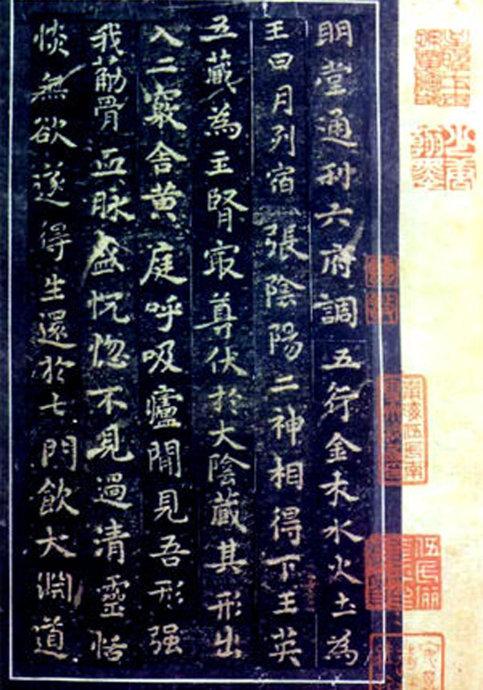 眀堂通利六府調五行金木水火土為
王日月列宿張陰陽二神相得下王英
五藏為主腎㝡尊伏於大陰藏其形出
入二竅舍黄庭呼吸廬閒見吾形强
我筋骨血脉盛怳惚不見過清靈恬
惔無欲遂得生還於七門飲大淵道